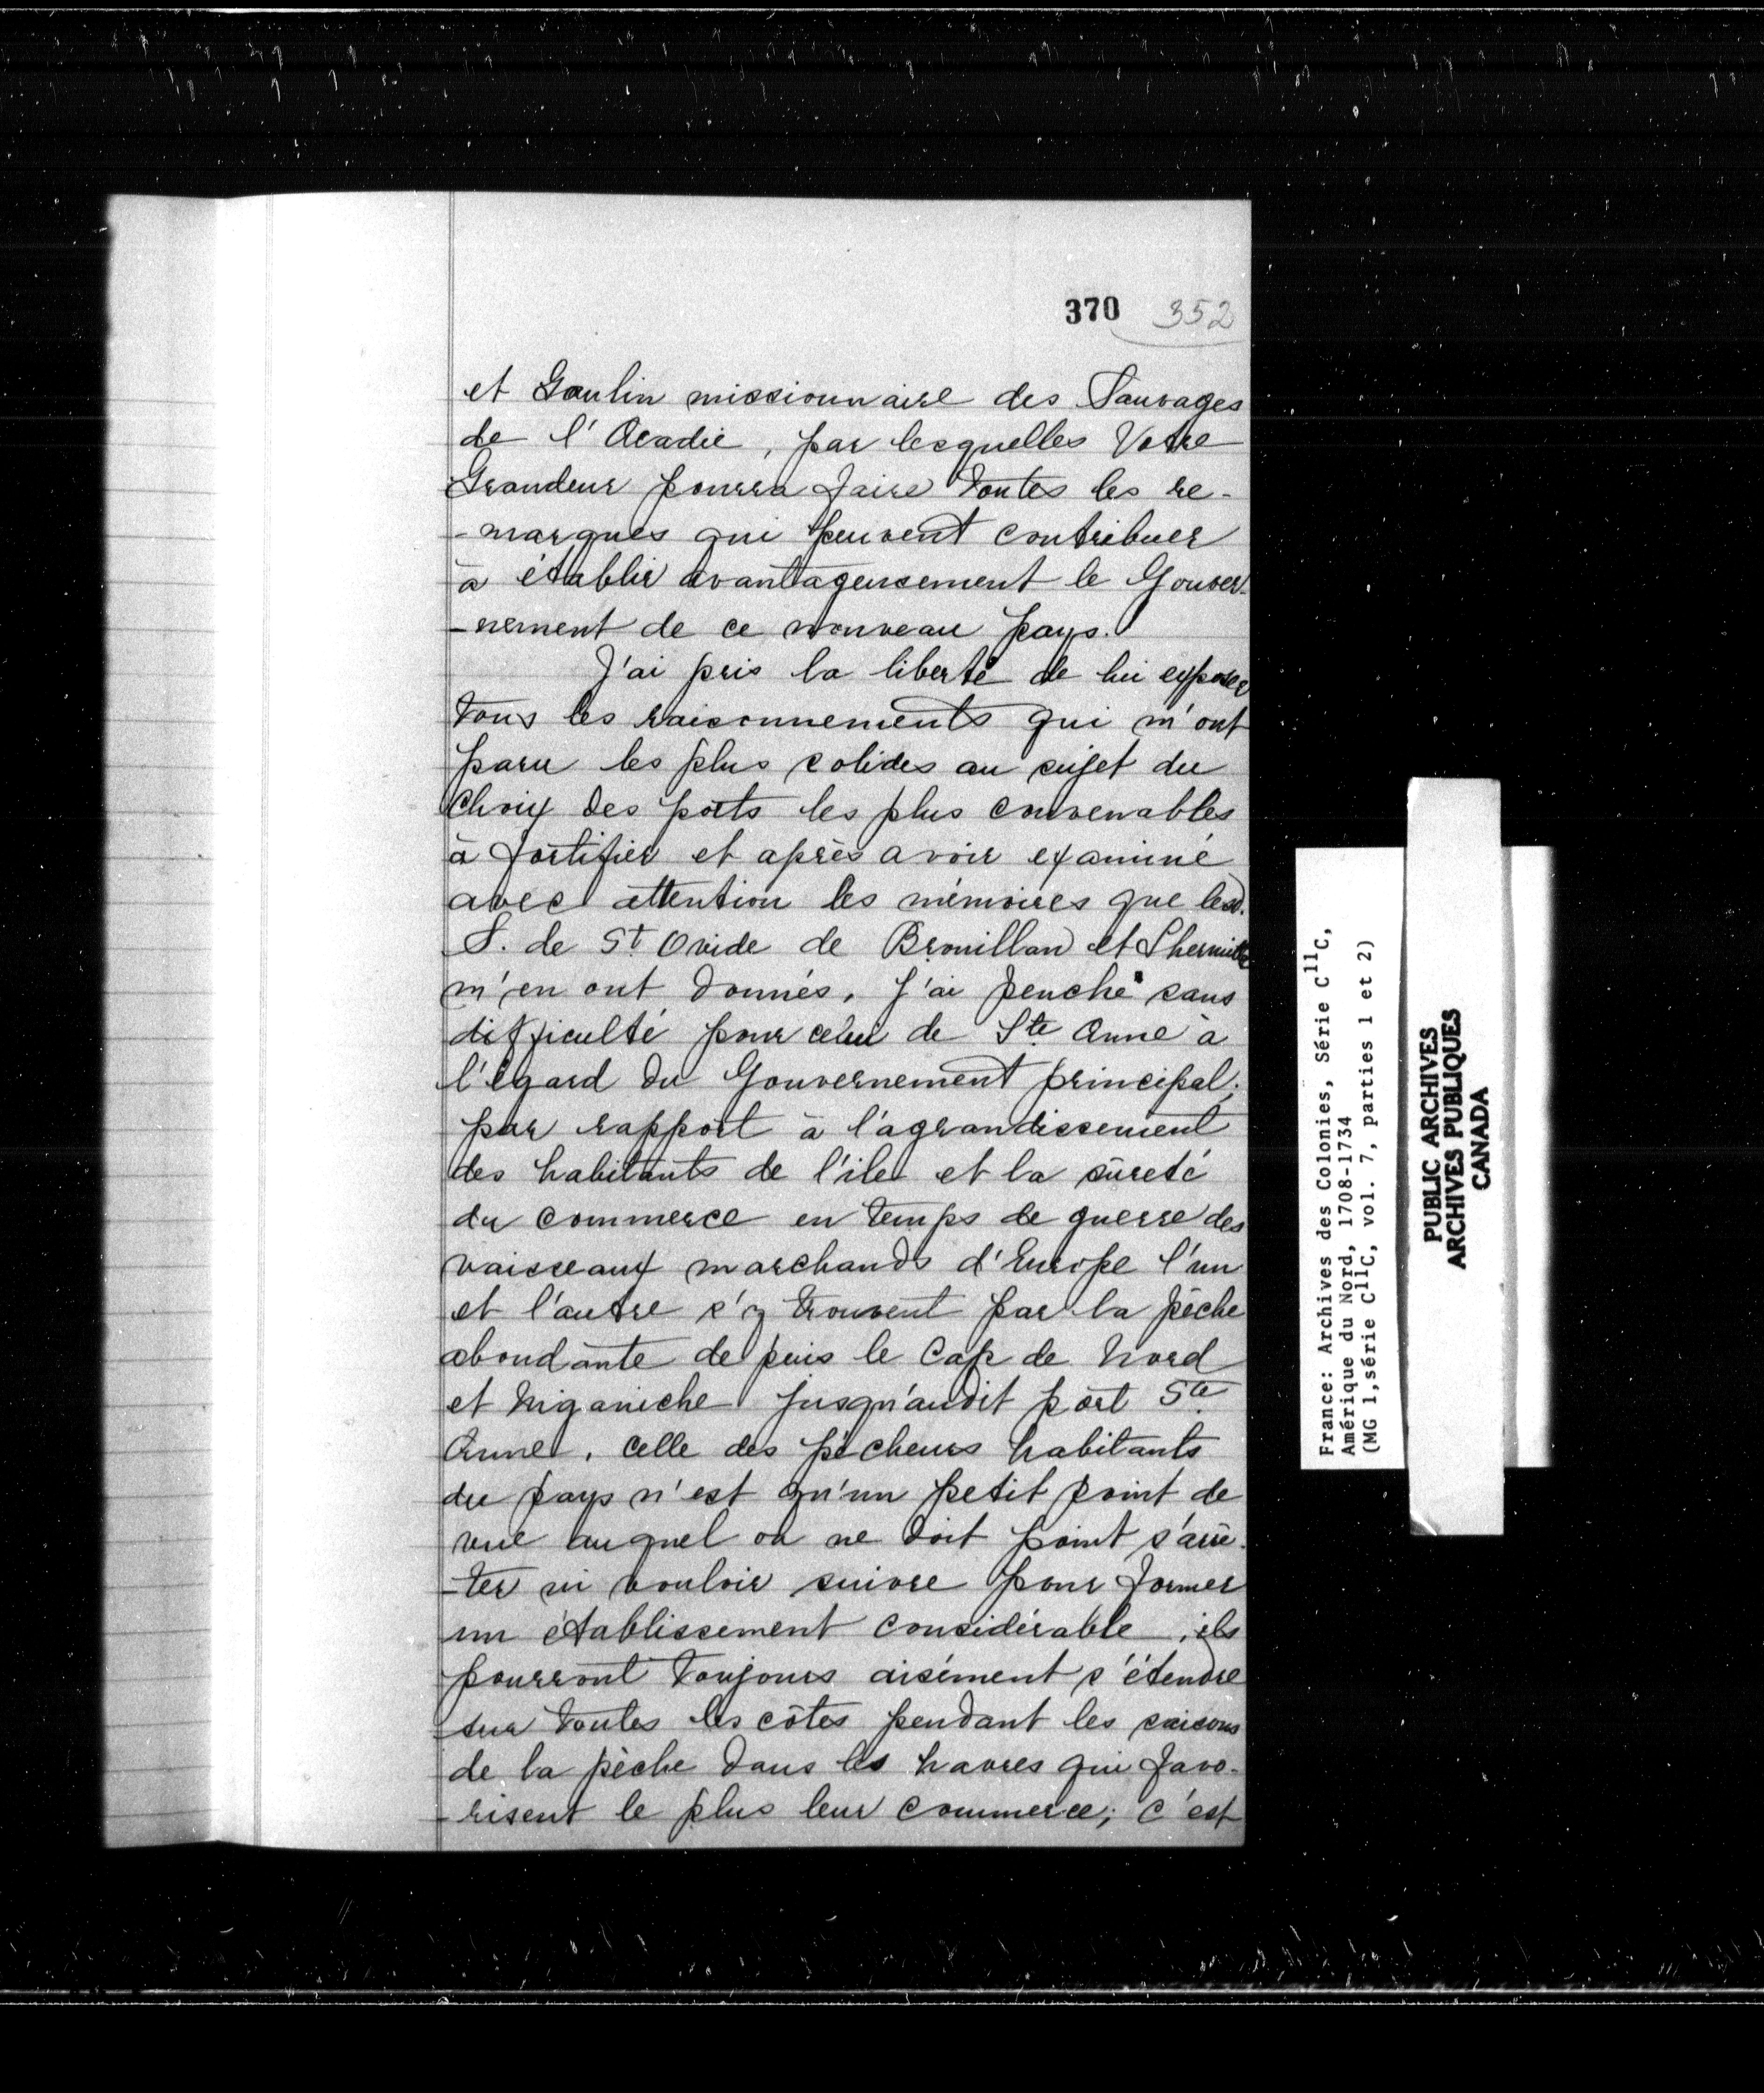 370 352
et Gaulin missionnaire des Sauvages
de l'Acadie, par lesquelles Votre
Grandeur pourra faire toutes les re-
-marques qui peuvent contribuer
à établir avantageusement le Gouver-
-nement de ce nouveau pays.
J'ai pris la liberté de lui exposer
tous les raisonnements qui m'ont
paru les plus solides au sujet du
choix des ports les plus convenables
à fortifier et après avoir examiné
avec attention les mémoires que lesd.
S. de St. Ovide de Brouillan et Lhermitte
m'en ont donnés, j'ai penché sans
difficulté pour celui de Ste Anne à
l'égard du Gouvernement principal;
par rapport à l'agrandissement
des habitants de l'ile et la sûreté
du commerce en temps de guerre des
vaisseaux marchands d'Europe l'un
et l'autre s'y trouvent par la pêche
abondante depuis le Cap de Nord
et Niganiche jusqu'audit port Ste
Anne, celle des pêcheurs habitants
du pays n'est qu'un petit point de
vue auquel on ne doit point s'arrê-
-ter ni vouloir suivre pour former
un établissement considérable, ils
pourront toujours aisément s'étendre
sur toutes les côtes pendant les saisons
de la pêche dans les havres qui favo-
-risent le plus leur commerce; c'est
France: Archives des Colonies, Série C11C,
Amérique du Nord, 1708-1734
(MG 1,série C11C, vol. 7, parties 1 et 2)
PUBLIC ARCHIVES
ARCHIVES PUBLIQUES
CANADA